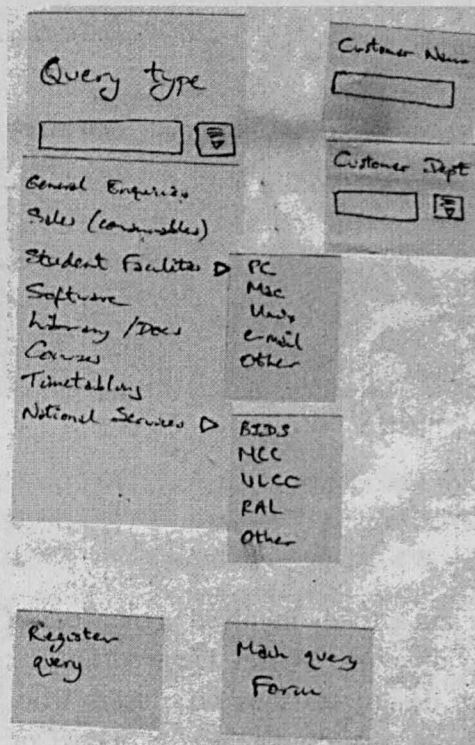 Query type
General Enquiries
Sales (consumables)
Student Facilities
Software
Library / Docs
Courses
Timetabling
National Services
PC
Mac
Unix
e-mail
Other
BIDS
MCC
ULCC
RAL
Other
Customer Name
Customer Dept
Register
query
Main query
Form